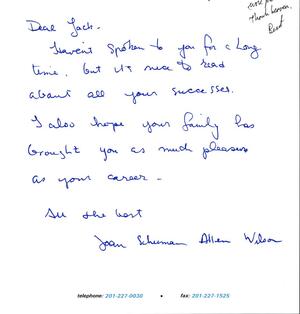 Dear Jack -
Haven't spoken to you for a long
time, but it's nice to read
about all your successes.
I also hope your family has
brought you as much pleasure
as your career -
All the best
Joan Schuman Allen Wilson
telephone: 201-227-0030 • fax: 201-227-1525